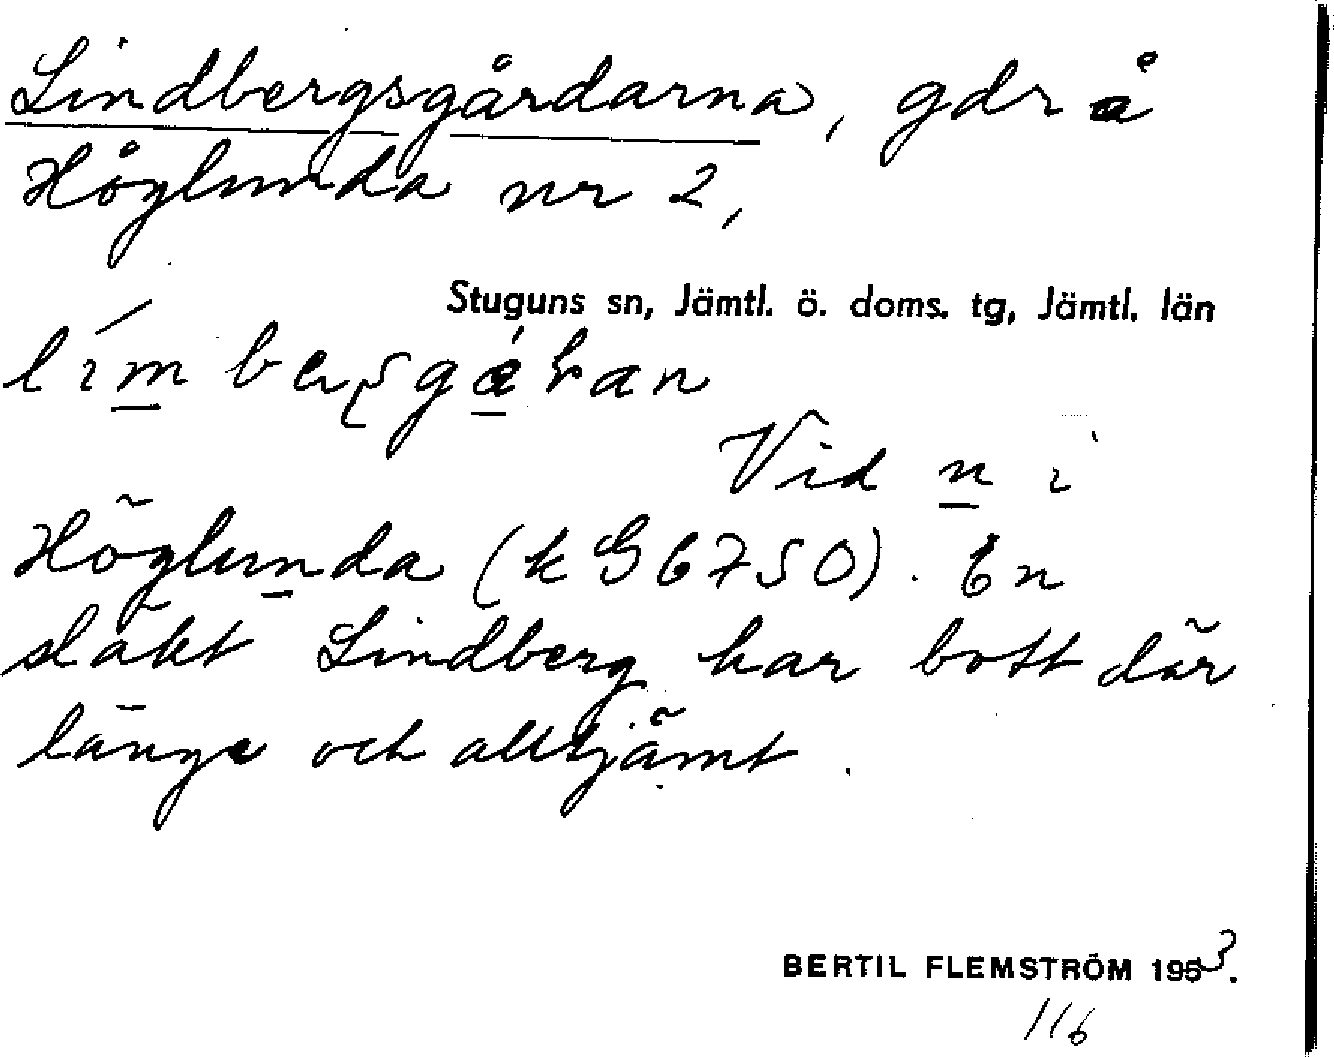 Lindbergsgårdarna, gdr å
Höglunda nr 2,
Stuguns sn, Jämtl. ö. doms. tg, Jämtl. län
Vid n i
Höglunda (k G6750). En
släkt Lindberg har bott där
länge och alltjämt.
BERTIL FLEMSTRÖM 1953.
116